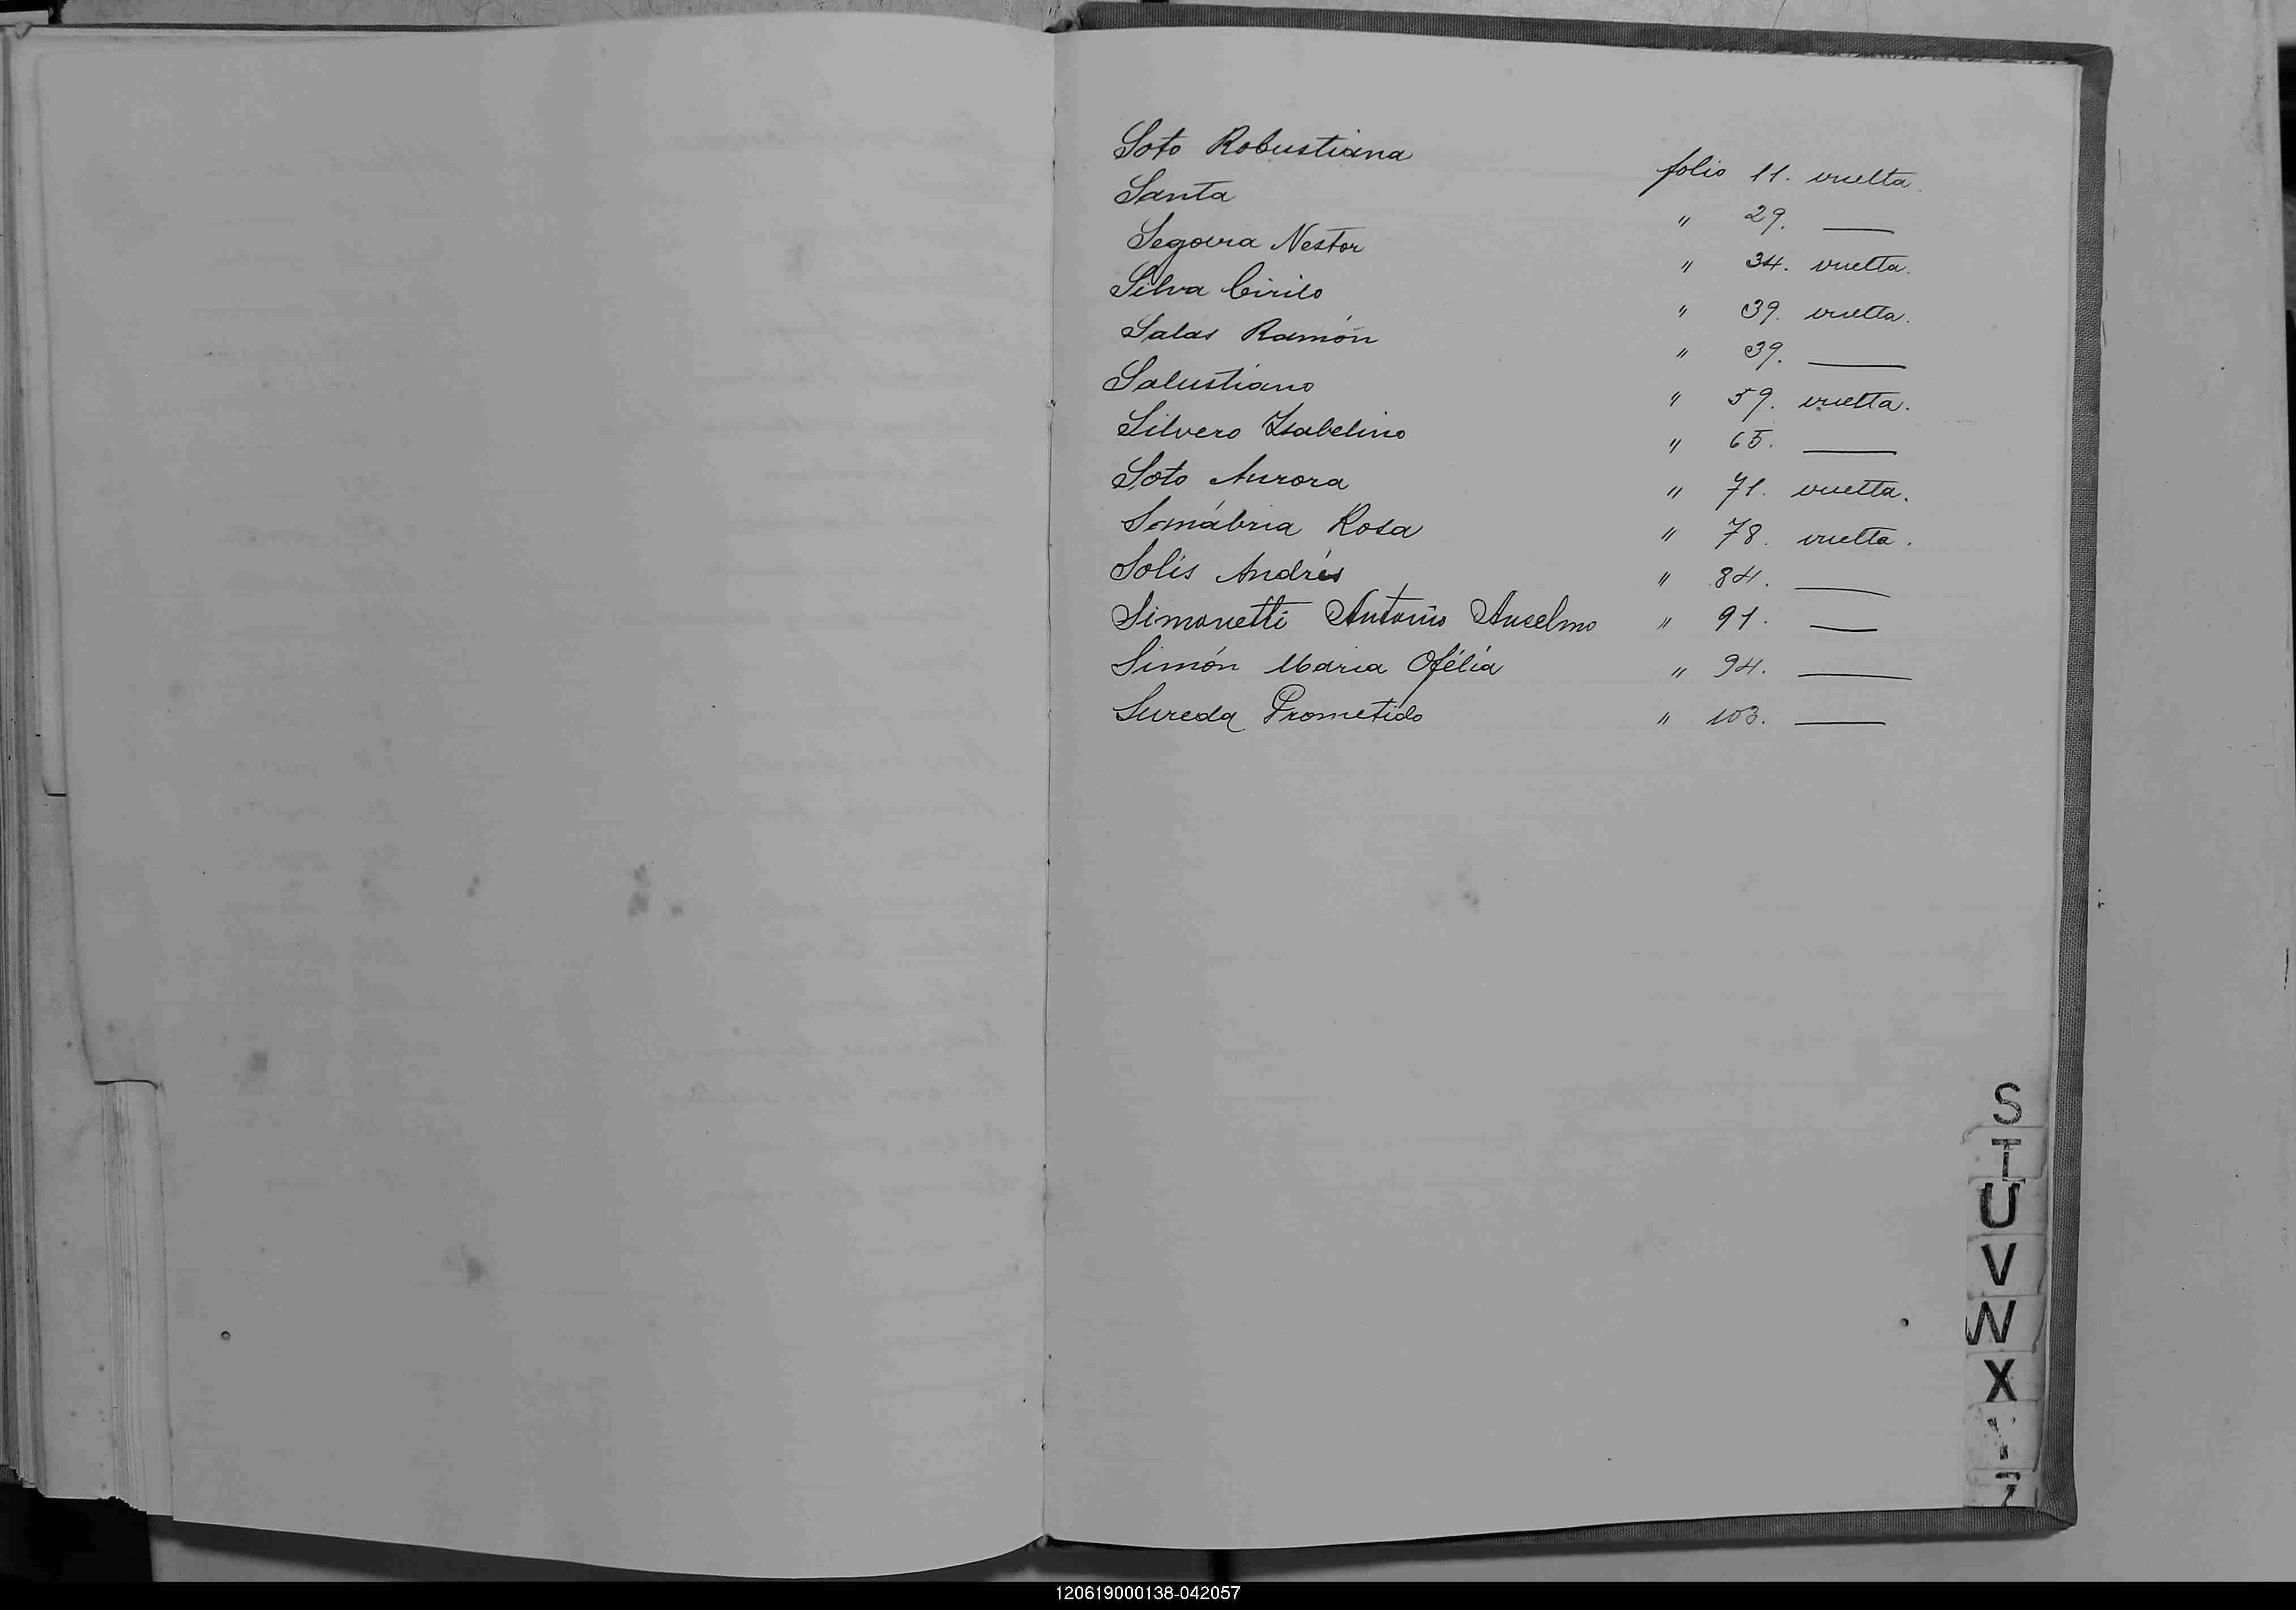 Soto Robustiana folio 11. vuelta.
Santa " 29. —
Segovia Nestor " 34. vuelta.
Silva Cirilo " 39. vuelta.
Salas Ramón " 39. —
Salustiano " 59. vuelta.
Silvero Isabelino " 65. —
Soto Aurora " 71. vuelta.
Samábria Rosa " 78. vuelta.
Solís Andrés " 84. —
Simonetti Antonio Anselmo " 91. —
Simón Maria Ofélia " 94. —
Sureda Prometido " 103. —
S
T
U
V
W
X
120619000138-042057